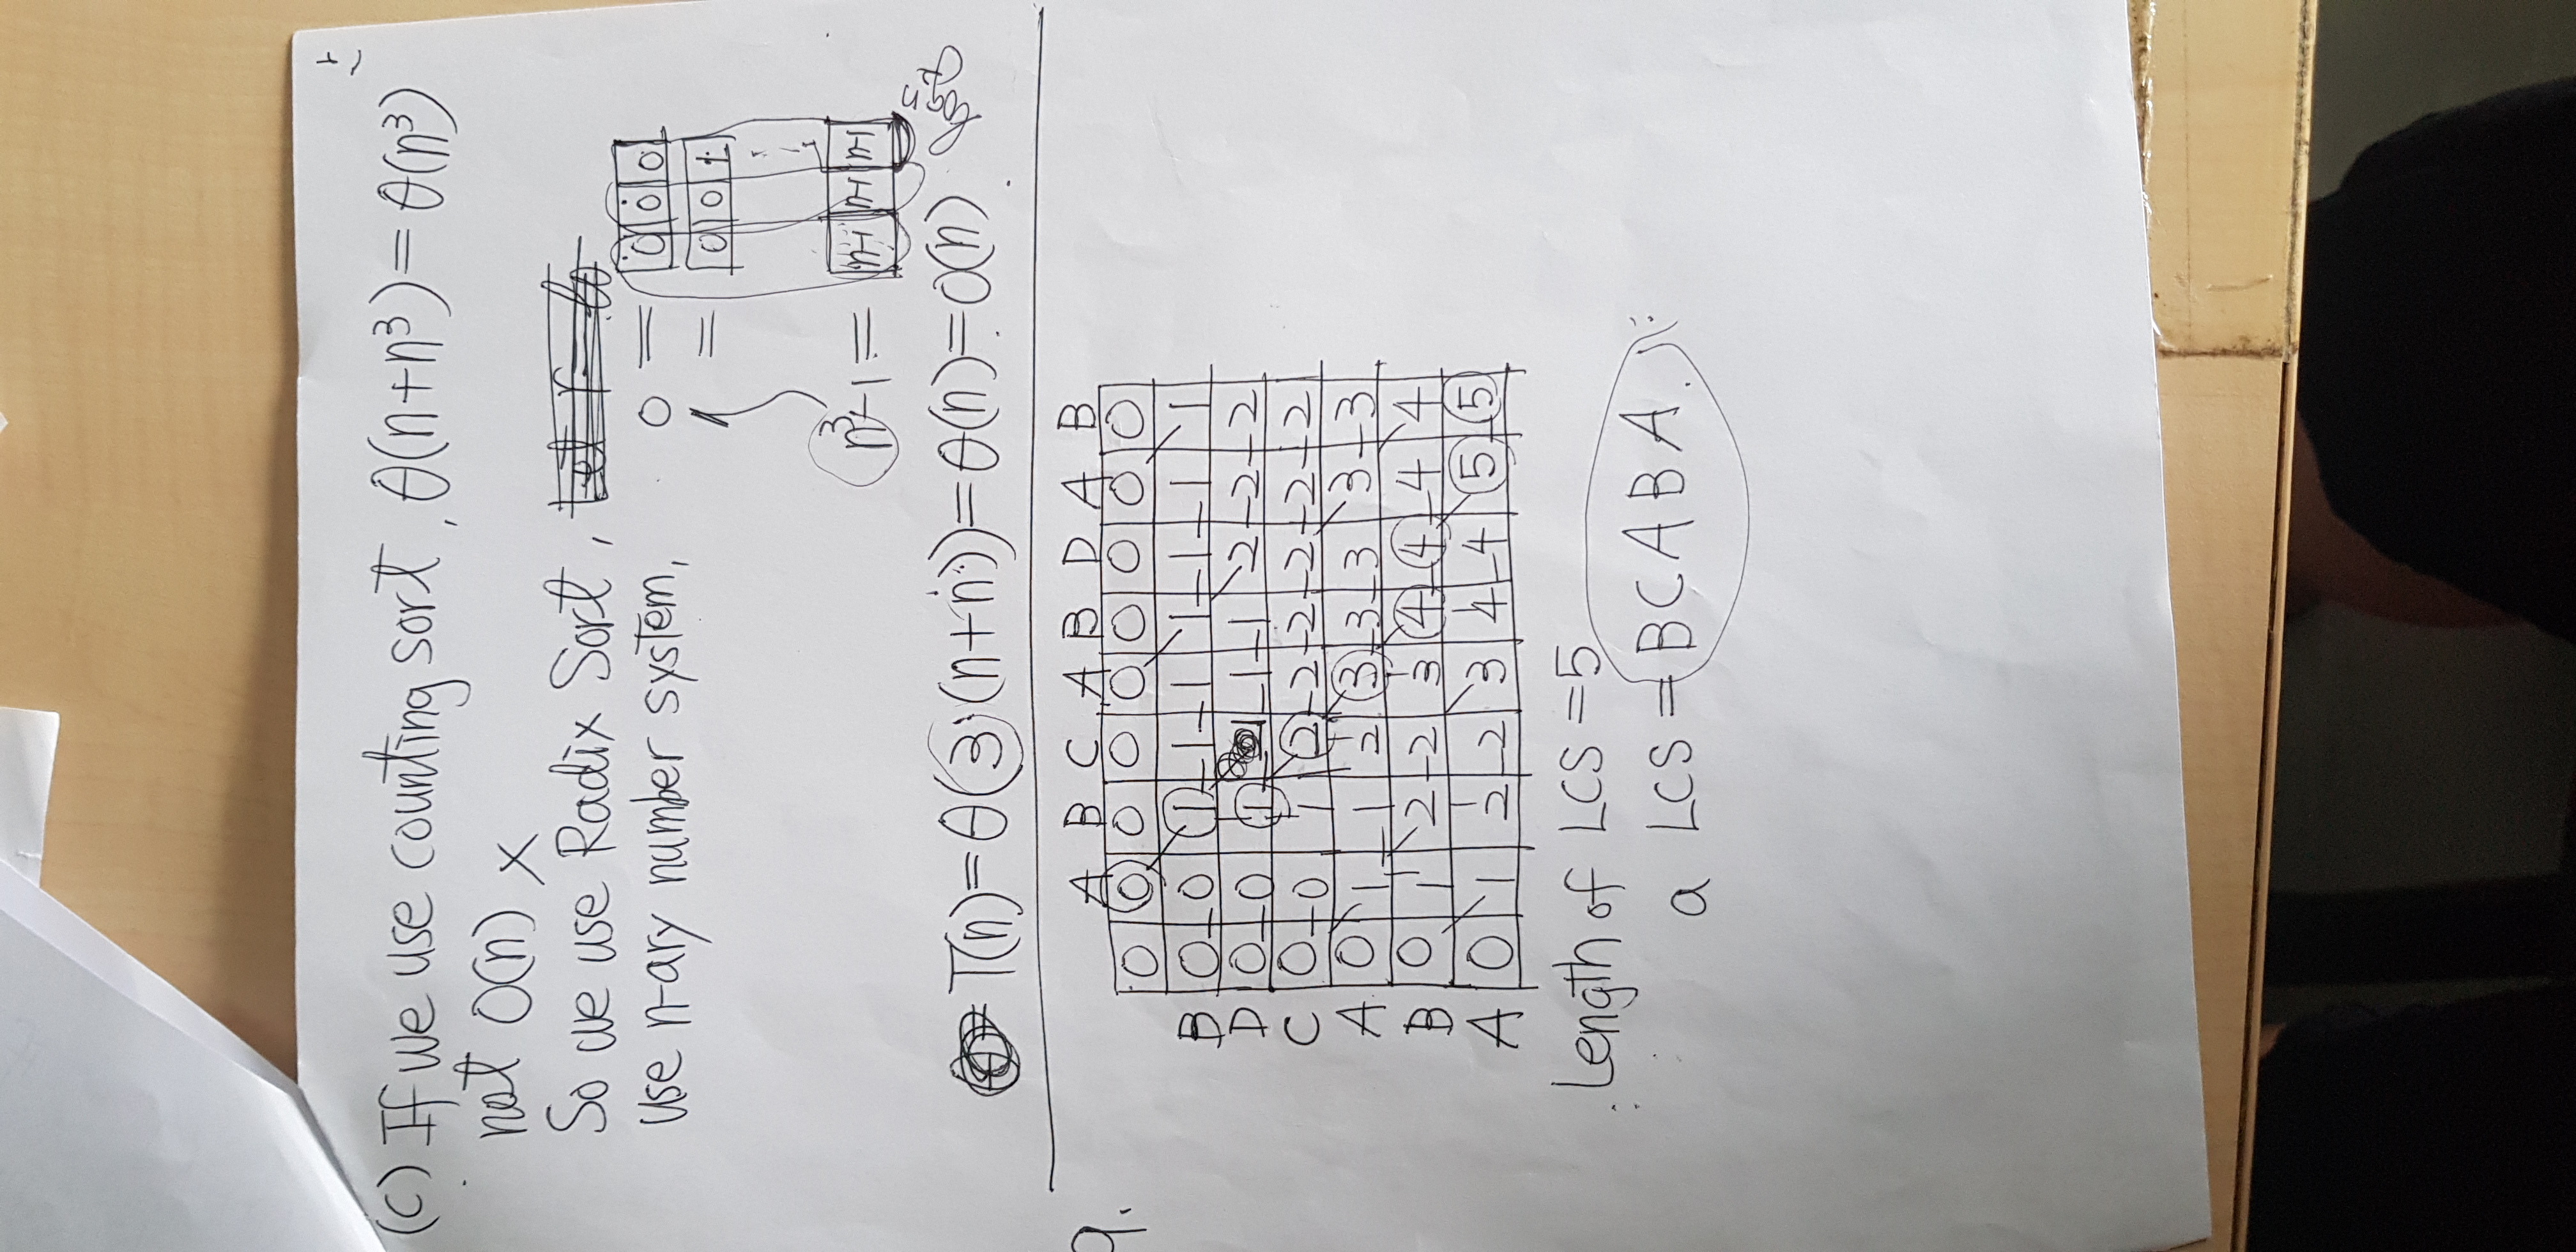 (C) If we use counting sort, θ(n+n³)=θ(n³)
not O(n) ×
So we use Radix Sort,
use n-ary number system,
0 = 0 0 0
1 = 0 0 1
n³-1 = n-1 n-1 n-1
T(n)=θ(3(n+n))=θ(n)=O(n).
9.
A B C A B D A B
0 0 0 0 0 0 0 0 0
B 0 0 1 1 1 1 1 1 1
D 0 0 1 1 1 1 2 2 2
C 0 0 1 2 2 2 2 2 2
A 0 1 1 2 3 3 3 3 3
B 0 1 2 2 3 4 4 4 4
A 0 1 2 2 3 4 4 5 5
Length of LCS =5
a LCS = BCABA.